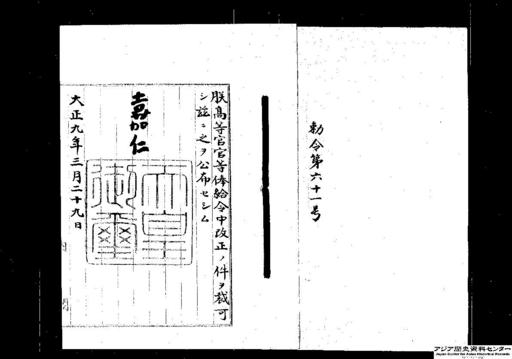 勅令第六十一号
朕高等官官等俸給令中改正ノ件ヲ裁可
シ茲ニ之ヲ公布セシム
嘉仁
天皇御璽
大正九年三月二十九日
内閣
アジア歴史資料センター
Japan Center for Asian Historical Records